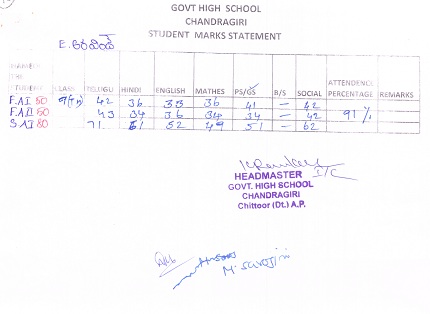 GOVT HIGH SCHOOL
CHANDRAGIRI
STUDENT MARKS STATEMENT
NAME OF THE STUDENT CLASS TELUGU HINDI ENGLISH MATHES PS/GS B/S SOCIAL ATTENDENCE PERCENTAGE REMARKS
F.A I 50 42 36 33 36 41 - 42
F.A II 50 43 34 36 34 34 - 42 91%
S.A I 80 71 61 52 49 51 - 62
HEADMASTER I/C
GOVT. HIGH SCHOOL
CHANDRAGIRI
Chittoor (Dt.) A.P.